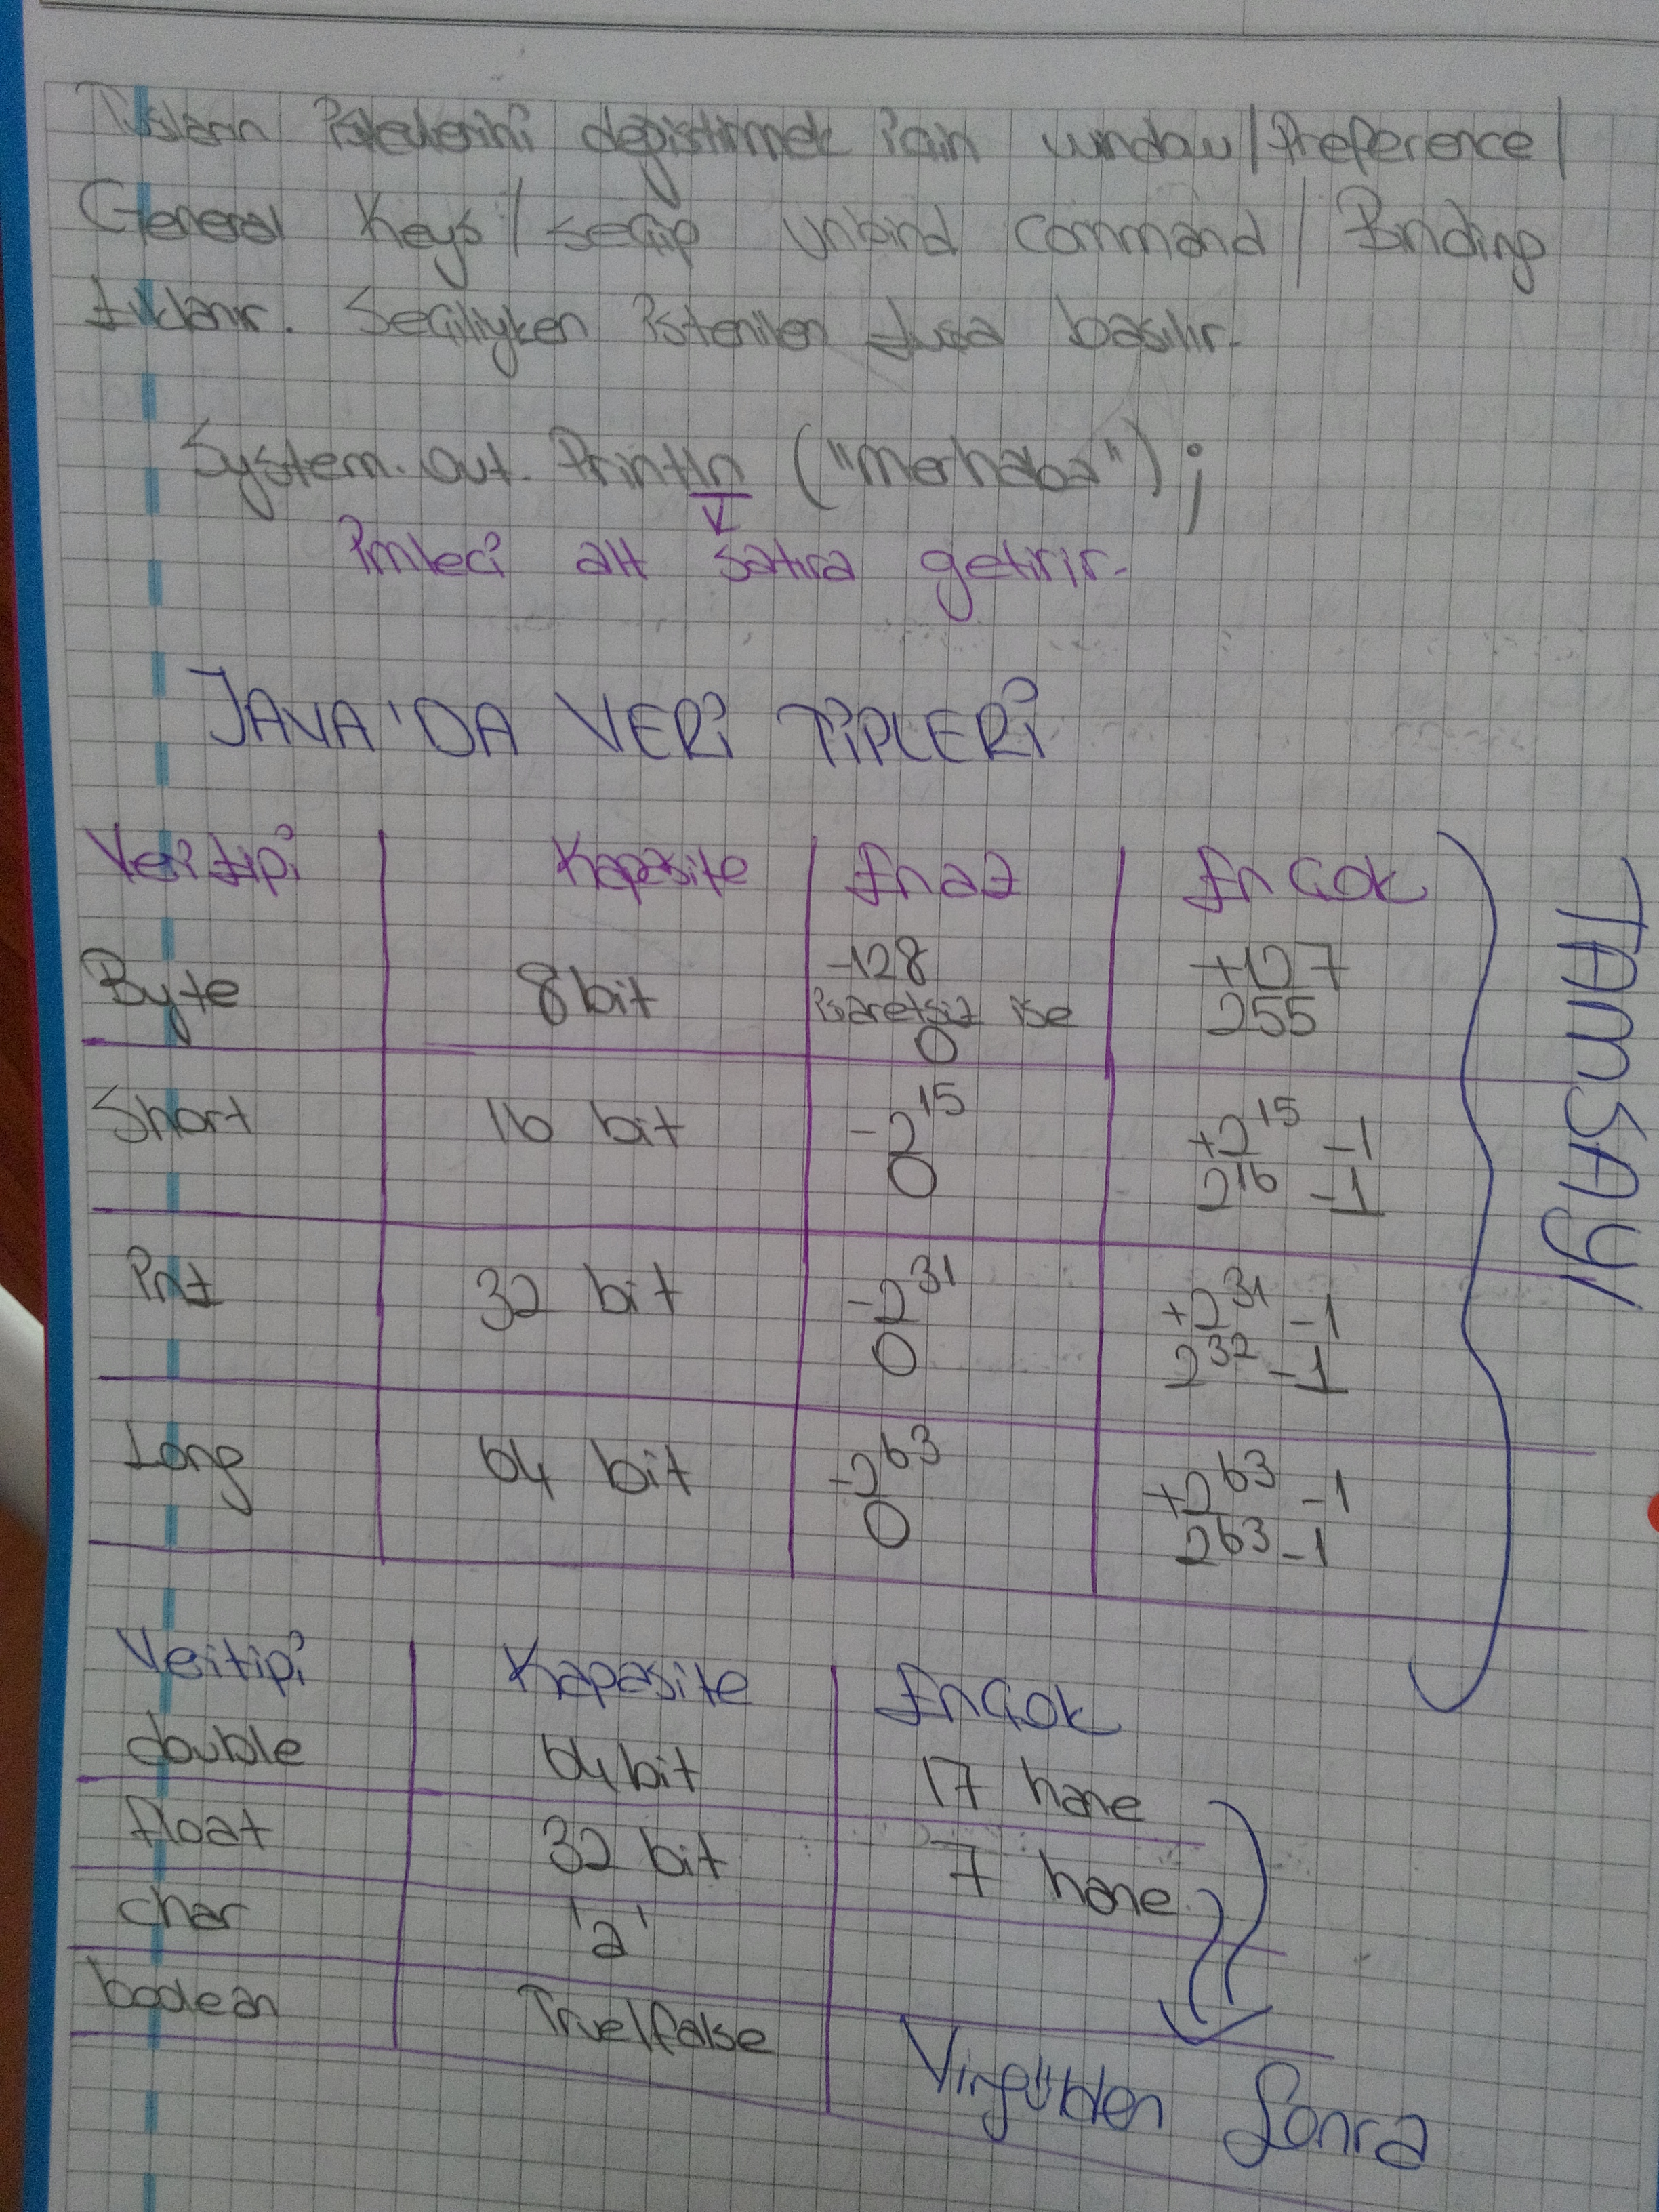 Tuşların işlevlerini değiştirmek için window/Preference/
General Keys/ seçip unbind command/ Binding
tıklanır. Seçiliyken istenilen tuşa basılır.
System.out.Println ("merhaba");
imleci alt satıra getirir.
JAVA'DA VERİ TİPLERİ
Veri tipi Kapasite En az En çok
Byte 8 bit -128 +127
işaretsiz ise 255
0
Short 16 bit -2^15 +2^15 -1
0 2^16 -1
int 32 bit -2^31 +2^31 -1
0 2^32 -1
Long 64 bit -2^63 +2^63 -1
0 2^63 -1
TAMSAYI
Veri tipi Kapasite En çok
double 64 bit 17 hane
float 32 bit 7 hane
char 'a'
boolean True/false
Virgülden Sonra